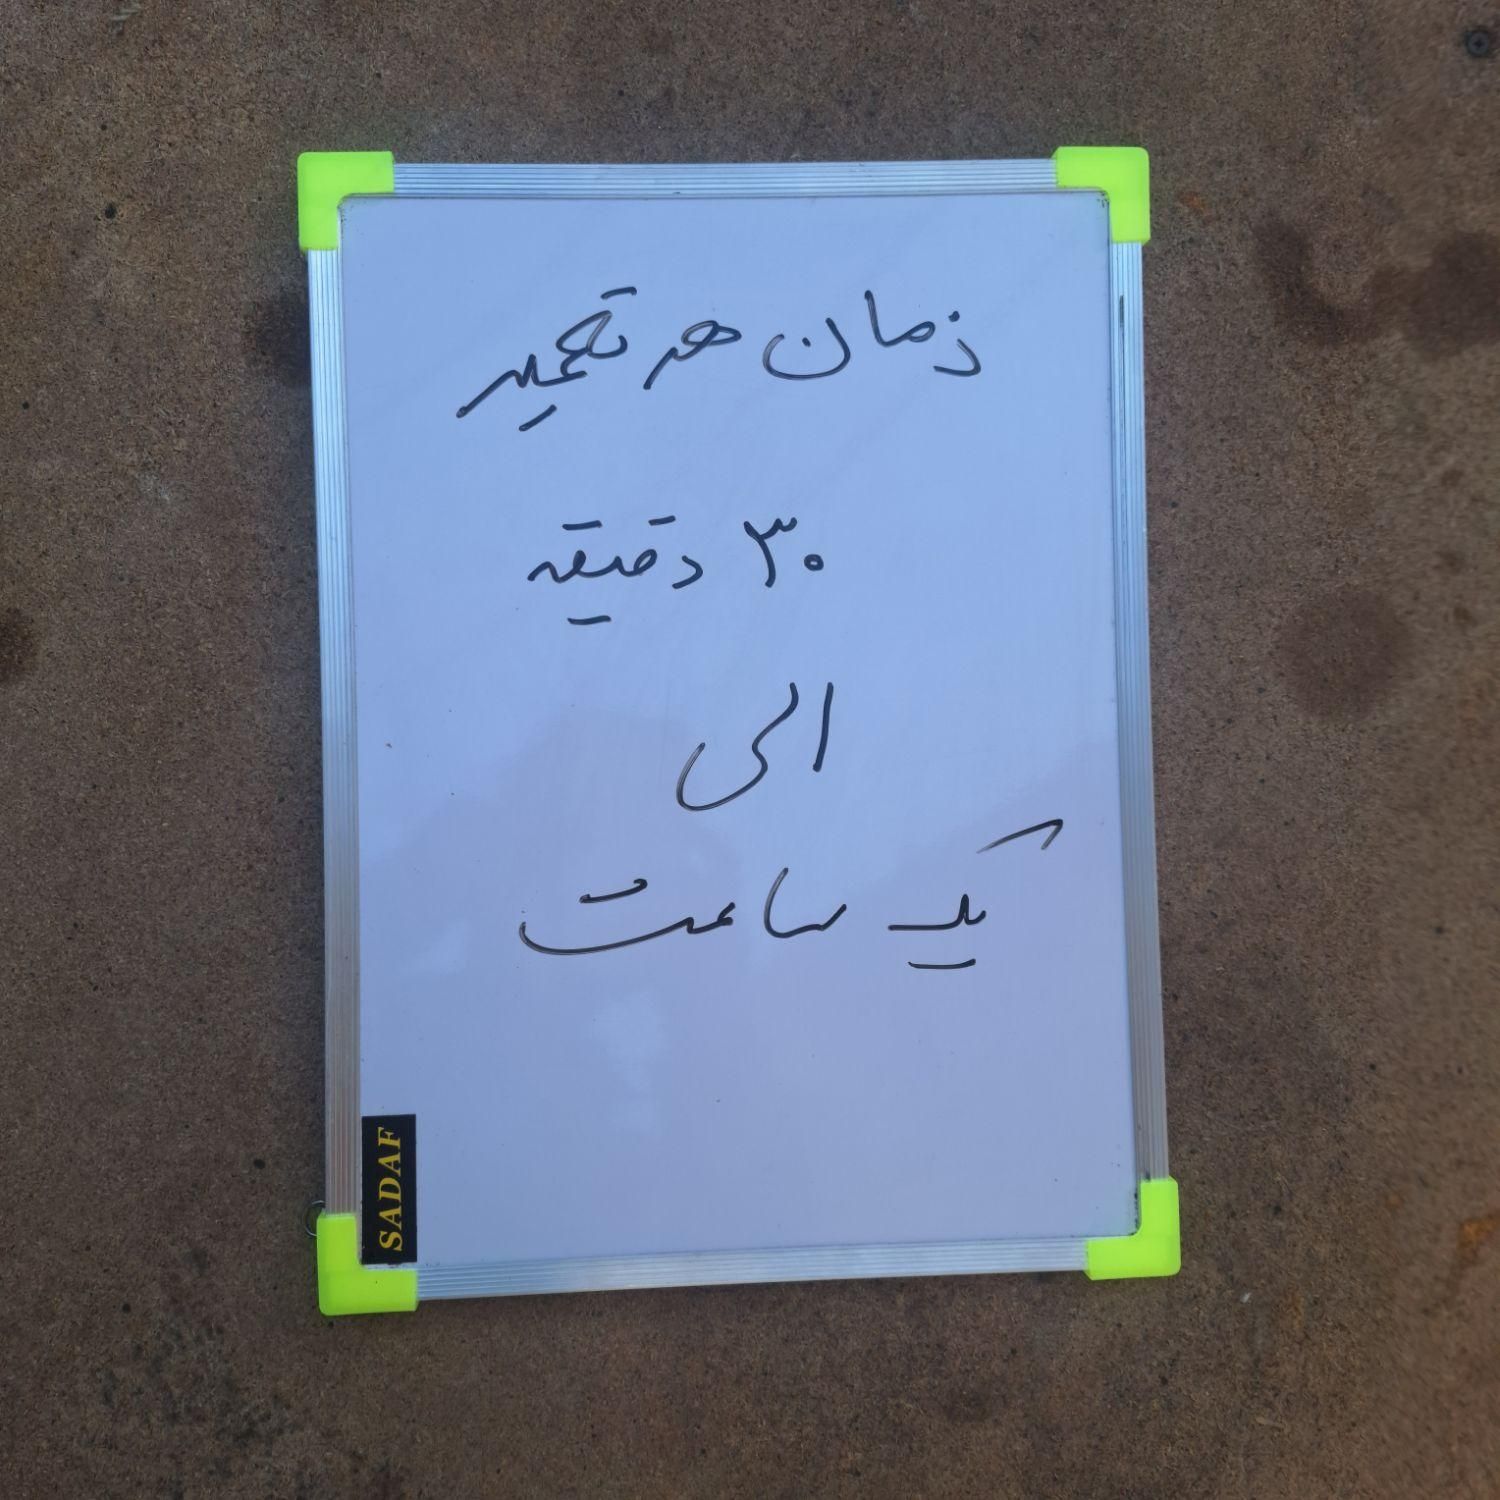 زمان هر تعمیر
۳۰ دقیقه
الی
یک ساعت
SADAF